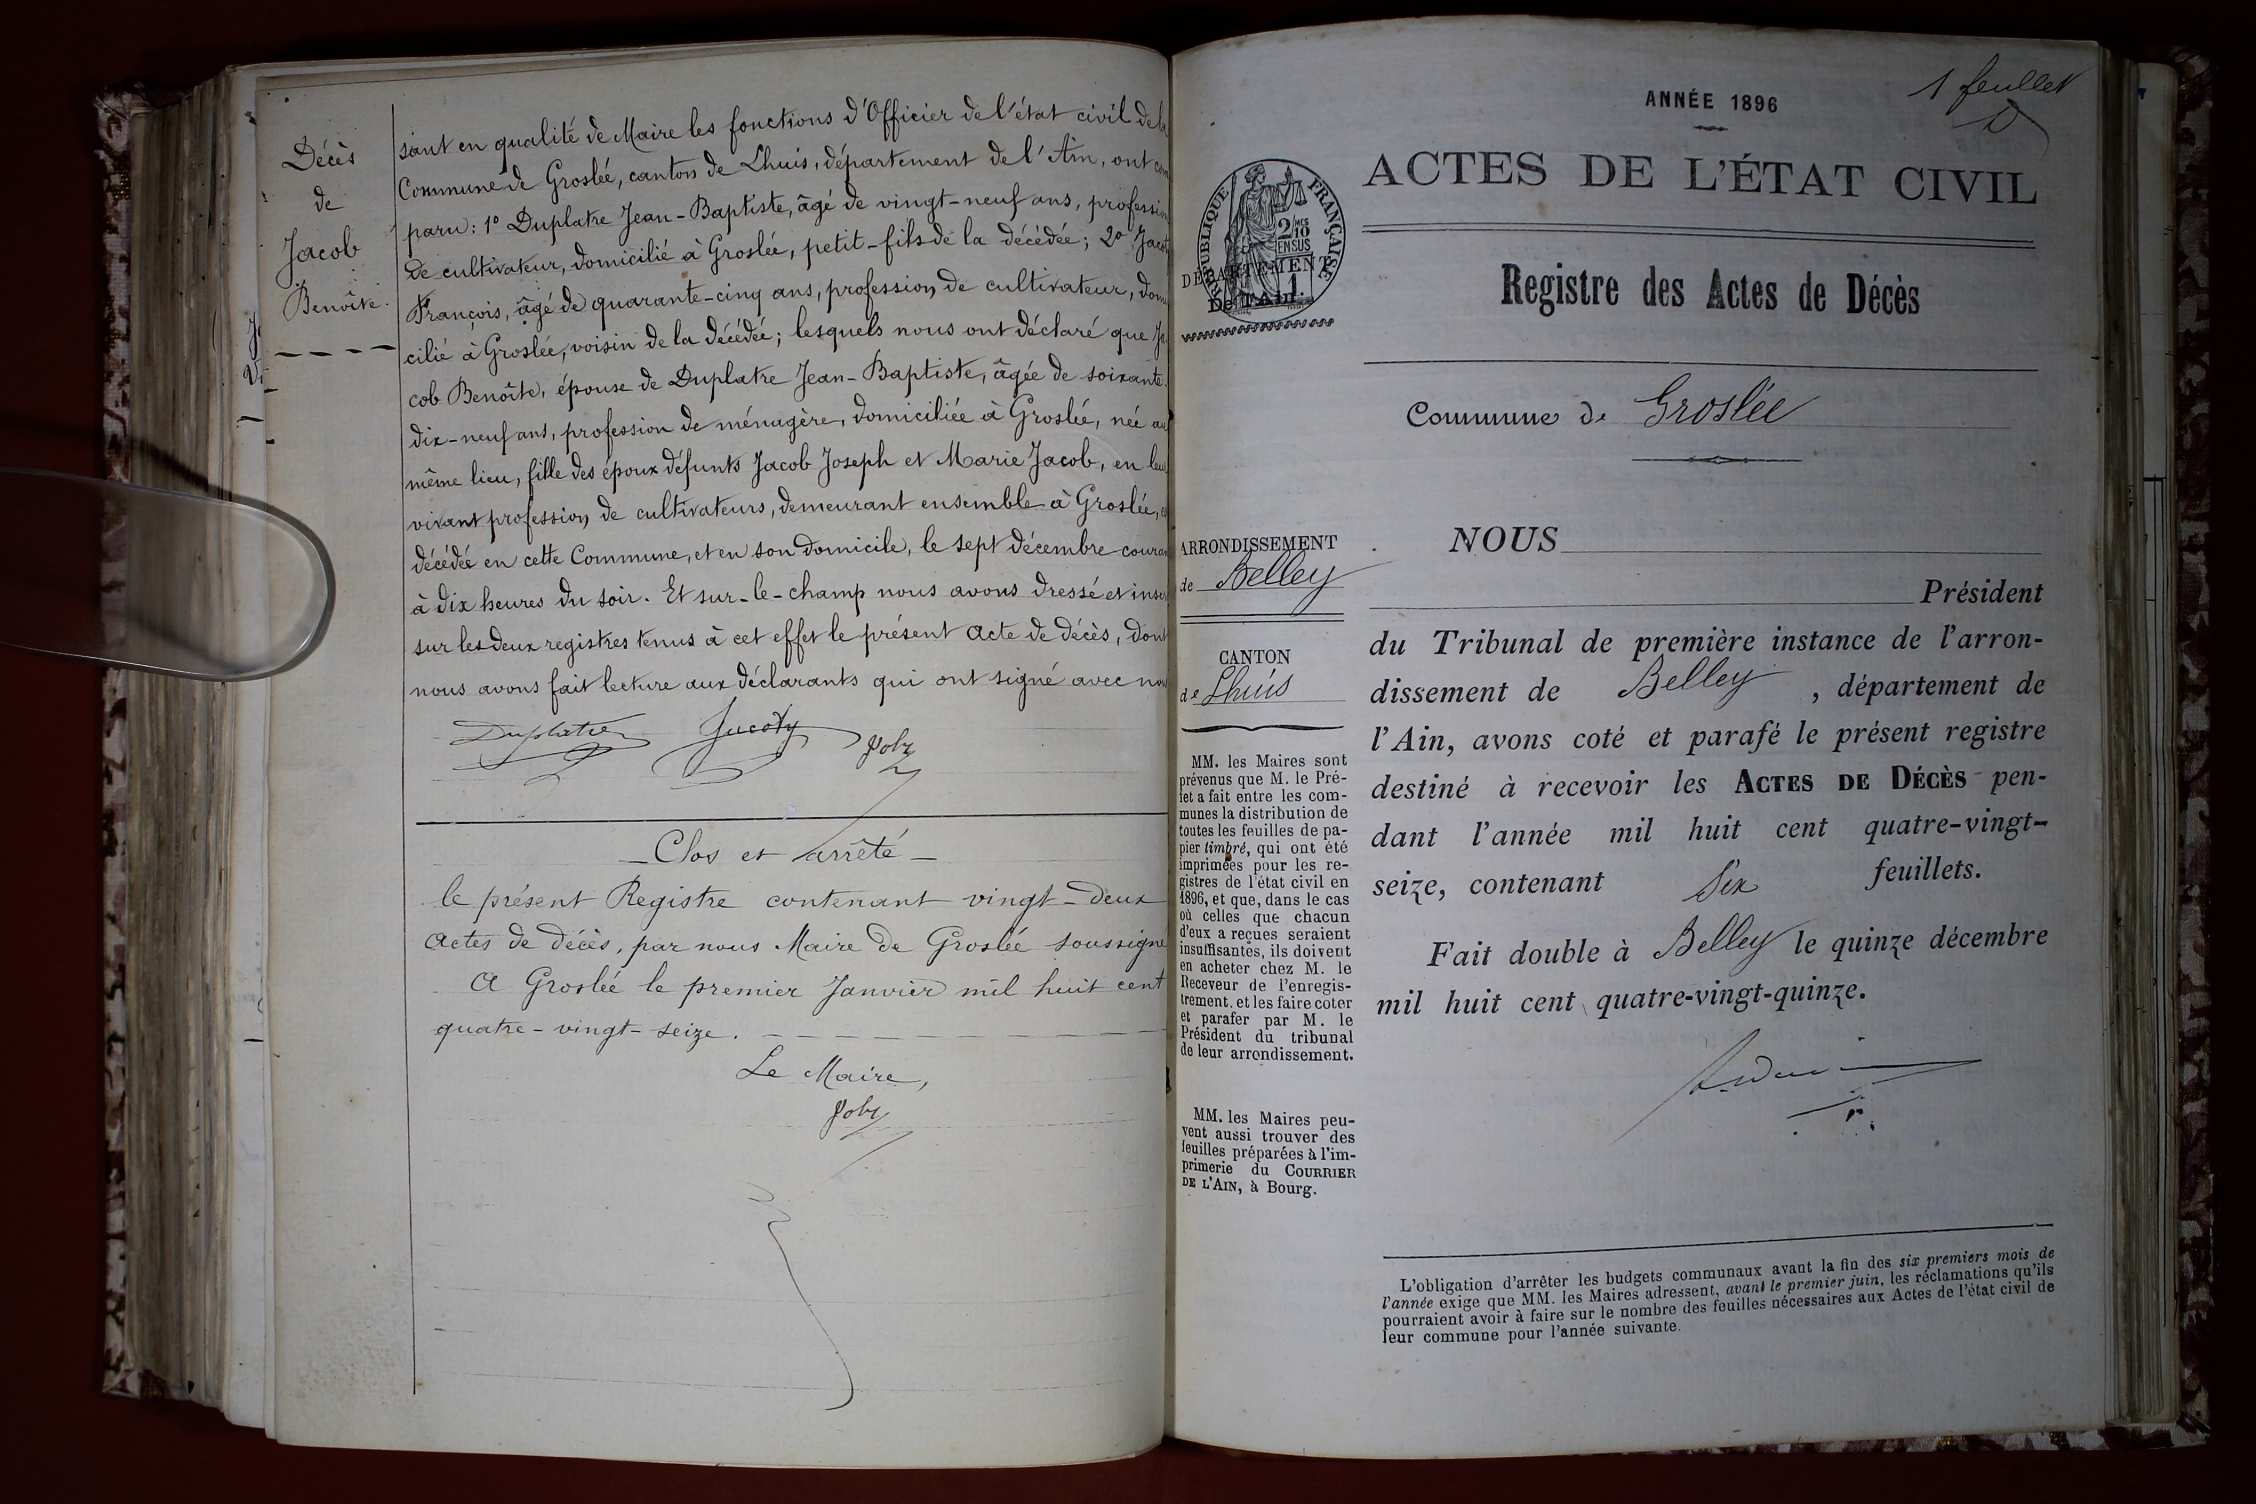 Décès
de
Jacob
Benoîte.
sant en qualité de Maire les fonctions d'Officier de l'état civil de la
Commune de Groslée, canton de Lhuis, département de l'Ain, ont com
paru: 1º Duplatre Jean-Baptiste, âgé de vingt-neuf ans, profession
de cultivateur, domicilié à Groslée, petit-fils de la décédée; 2º
François, âgé de quarante-cinq ans, profession de cultivateur, domi
cilié à Groslée, voisin de la décédée; lesquels nous ont déclaré que Ja
cob Benoîte, épouse de Duplatre Jean-Baptiste, âgée de soixante-
dix-neuf ans, profession de ménagère, domiciliée à Groslée, née au
même lieu, fille des époux défunts Jacob Joseph et Marie Jacob, en leur
vivant profession de cultivateurs, demeurant ensemble à Groslée,
décédée en cette Commune, et en son domicile, le sept décembre couran
à dix heures du soir. Et sur-le-champ nous avons dressé et inser
sur les deux registres tenus à cet effet le présent acte de décès, dont
nous avons fait lecture aux déclarants qui ont signé avec nou
Duplatre Jucoty
— Clos et arrêté —
le présent Registre contenant vingt-deux
actes de décès, par nous Maire de Groslée soussigné
A Groslée le premier Janvier mil huit cent
quatre-vingt-seize.
Le Maire,
1 feuillet
ANNÉE 1896
ACTES DE L'ÉTAT CIVIL
RÉPUBLIQUE FRANÇAISE
2/10 MES
EN SUS
DÉPARTEMENT
De l'Ain.
1.
Registre des Actes de Décès
Commune de Groslée
ARRONDISSEMENT
de Belley
CANTON
de Lhuis
MM. les Maires sont
prévenus que M. le Pré-
fet a fait entre les com-
munes la distribution de
toutes les feuilles de pa-
pier timbré, qui ont été
imprimées pour les re-
gistres de l'état civil en
1896, et que, dans le cas
où celles que chacun
d'eux a reçues seraient
insuffisantes, ils doivent
en acheter chez M. le
Receveur de l'enregis-
trement, et les faire coter
et parafer par M. le
Président du tribunal
de leur arrondissement.
MM. les Maires peu-
vent aussi trouver des
feuilles préparées à l'im-
primerie du COURRIER
DE L'AIN, à Bourg.
NOUS
Président
du Tribunal de première instance de l'arron-
dissement de Belley, département de
l'Ain, avons coté et parafé le présent registre
destiné à recevoir les ACTES DE DÉCÈS pen-
dant l'année mil huit cent quatre-vingt-
seize, contenant Six feuillets.
Fait double à Belley le quinze décembre
mil huit cent quatre-vingt-quinze.
L'obligation d'arrêter les budgets communaux avant la fin des six premiers mois de
l'année exige que MM. les Maires adressent, avant le premier juin, les réclamations qu'ils
pourraient avoir à faire sur le nombre des feuilles nécessaires aux Actes de l'état civil de
leur commune pour l'année suivante.